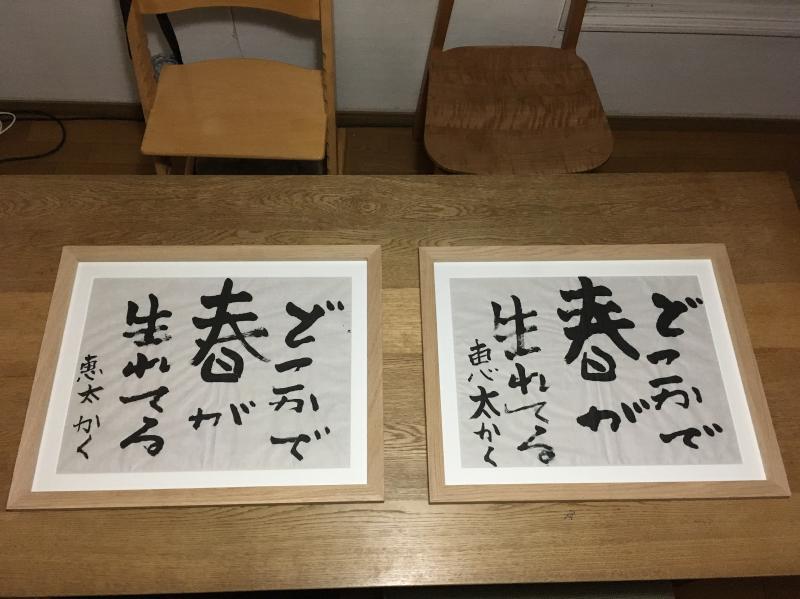 どこかで
春が
生れてる
恵太かく
どこかで
春が
生れてる
恵太かく